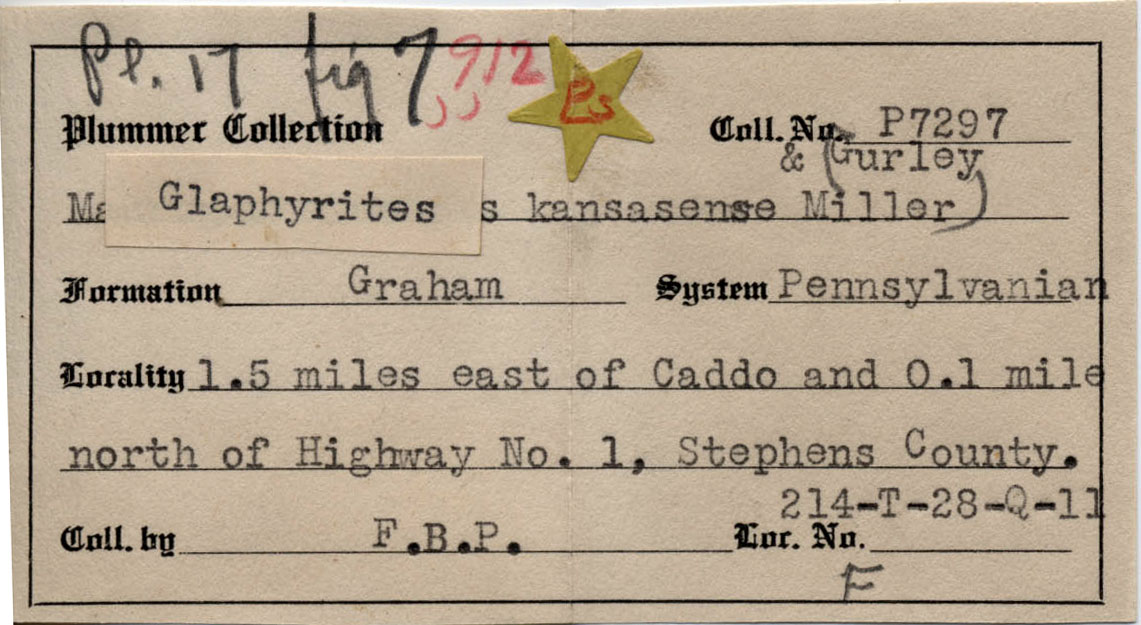 Pl. 17 fig 7 912
Ps
Plummer Collection Coll. No. P7297
& (Gurley
Ma Glaphyrites s kansasense Miller)
Formation Graham System Pennsylvanian
Locality 1.5 miles east of Caddo and 0.1 mile
north of Highway No. 1, Stephens County.
214-T-28-Q-11
Coll. by F.B.P. Loc. No.
F